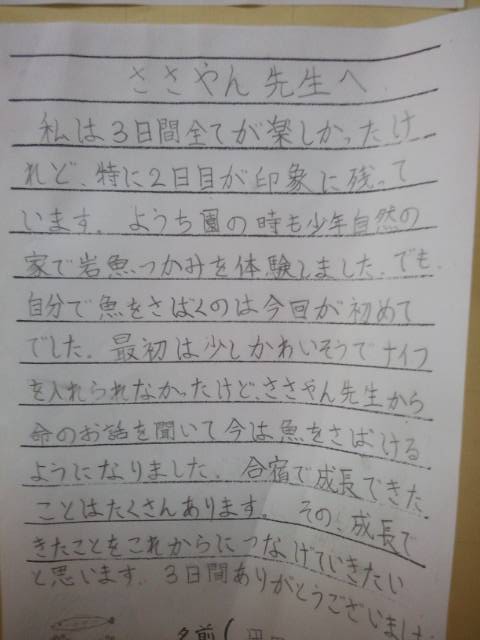 ささやん先生へ
私は3日間全てが楽しかったけ
れど、特に2日目が印象に残って
います。ようち園の時も少年自然の
家で岩魚つかみを体験しました。でも、
自分で魚をさばくのは今回が初めて
でした。最初は少しかわいそうでナイフ
を入れられなかったけど、ささやん先生から
命のお話を聞いて今は魚をさばける
ようになりました。合宿で成長できた
ことはたくさんあります。その、成長で
きたことをこれからにつなげていきたい
と思います。3日間ありがとうございました
名前(